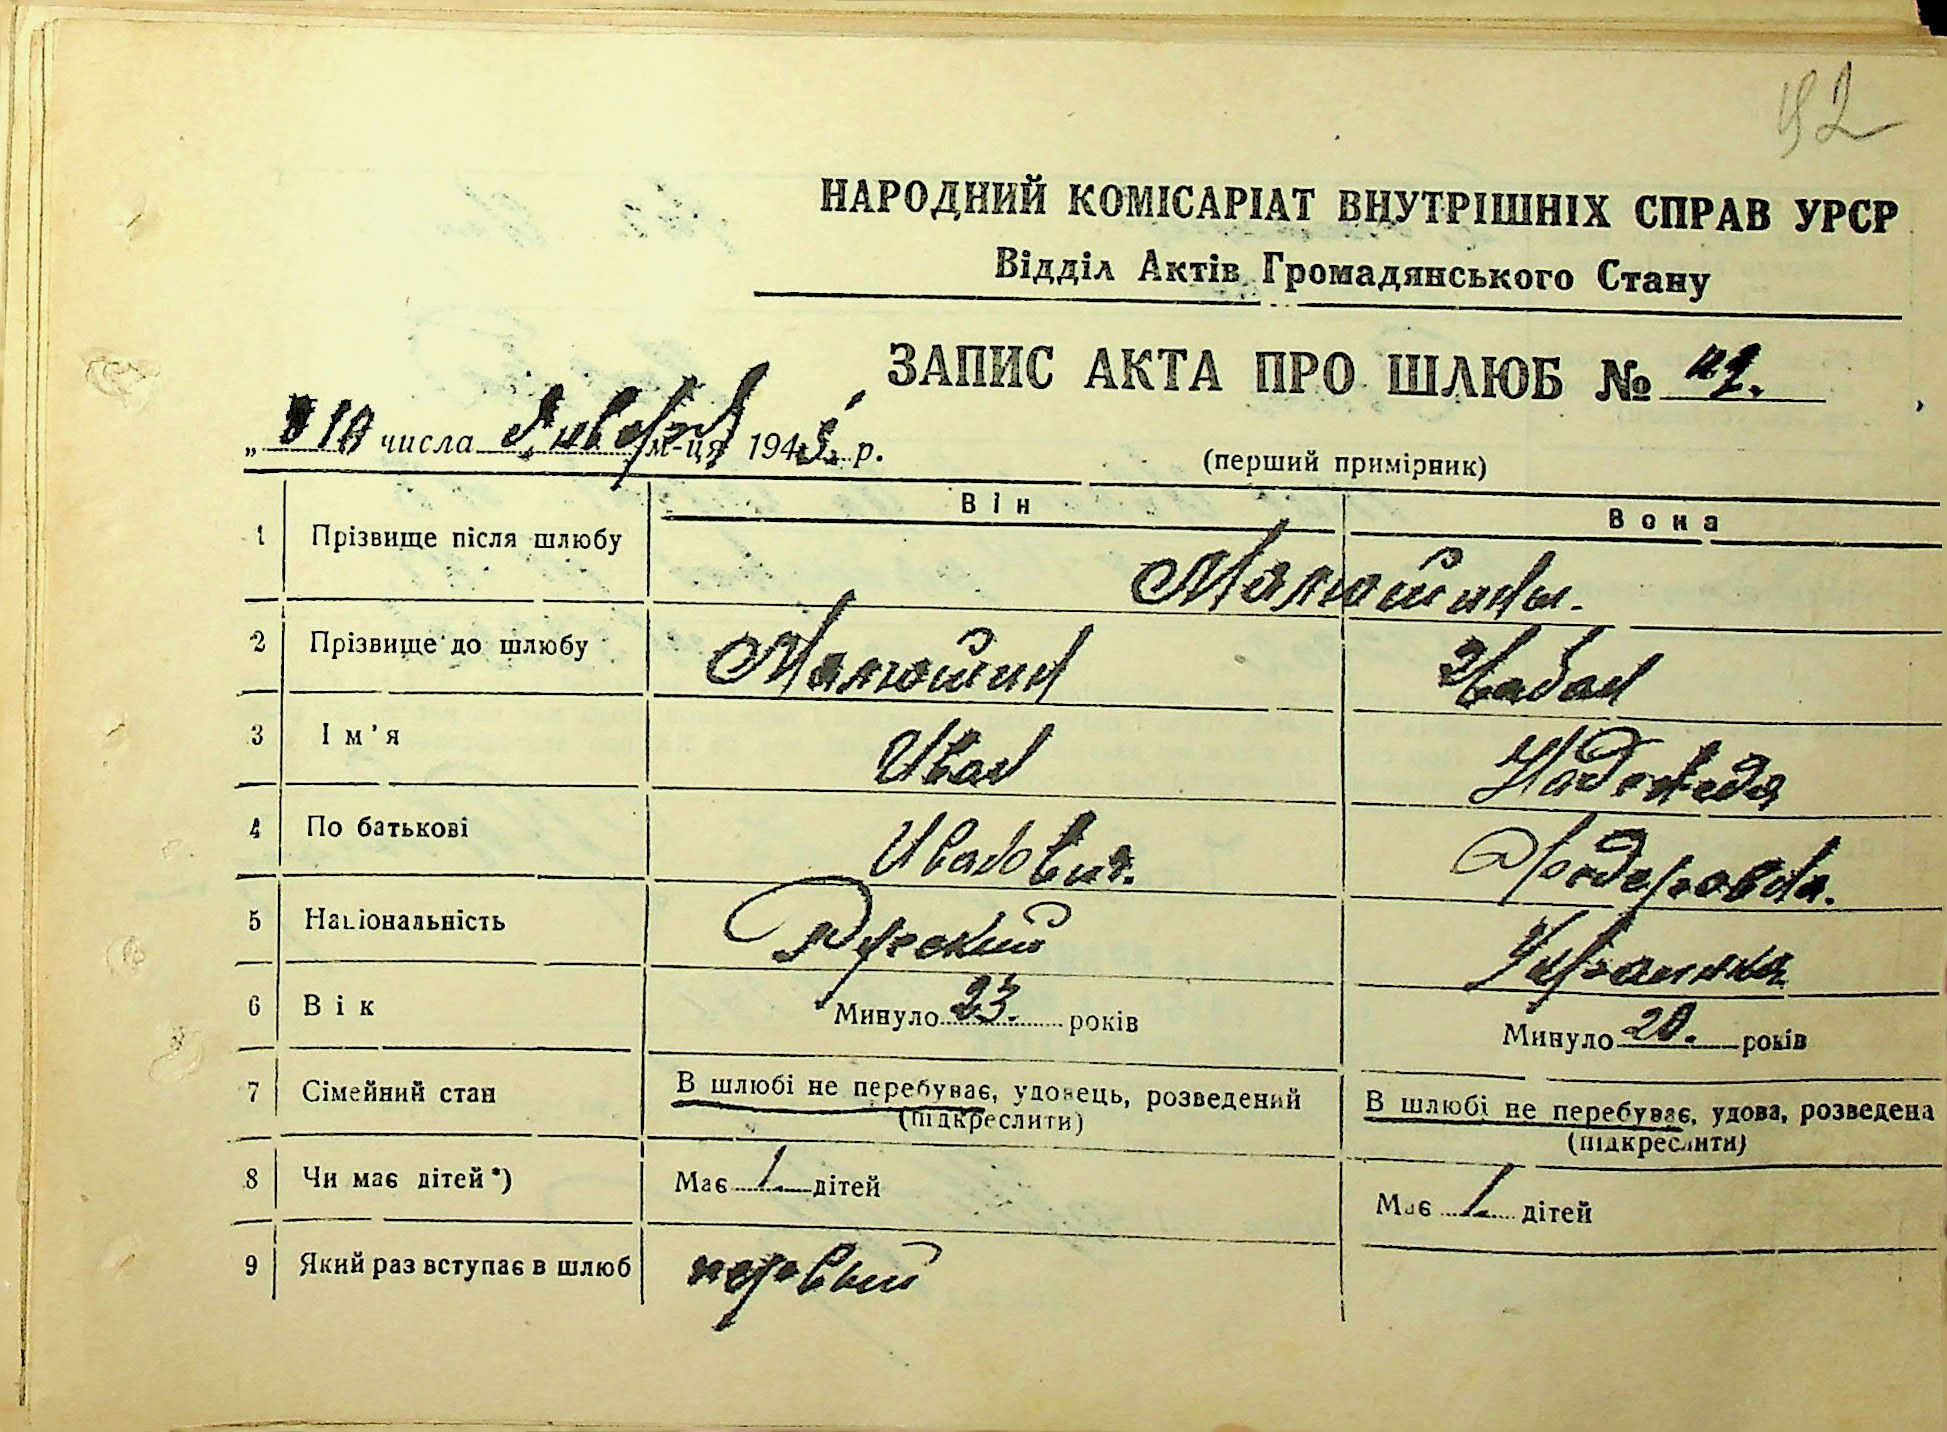 92
НАРОДНИЙ КОМІСАРІАТ ВНУТРІШНІХ СПРАВ УРСР
Відділ Актів Громадянського Стану
ЗАПИС АКТА ПРО ШЛЮБ № 92.
„ 10 числа Января м-ця 1945 р.
(перший примірник)
Він Вона
1 Прізвище після шлюбу Малюшины.
2 Прізвище до шлюбу Малюшин
3 Ім'я Иван Надежда
4 По батькові Иванович. Федоровна.
5 Національність Русский Украинка
6 Вік Минуло 23. років Минуло 20. років
7 Сімейний стан В шлюбі не перебуває, удовець, розведений В шлюбі не перебуває, удова, розведена
(підкреслити) (підкреслити)
8 Чи має дітей*) Має 1. дітей Має 1. дітей
9 Який раз вступає в шлюб первый